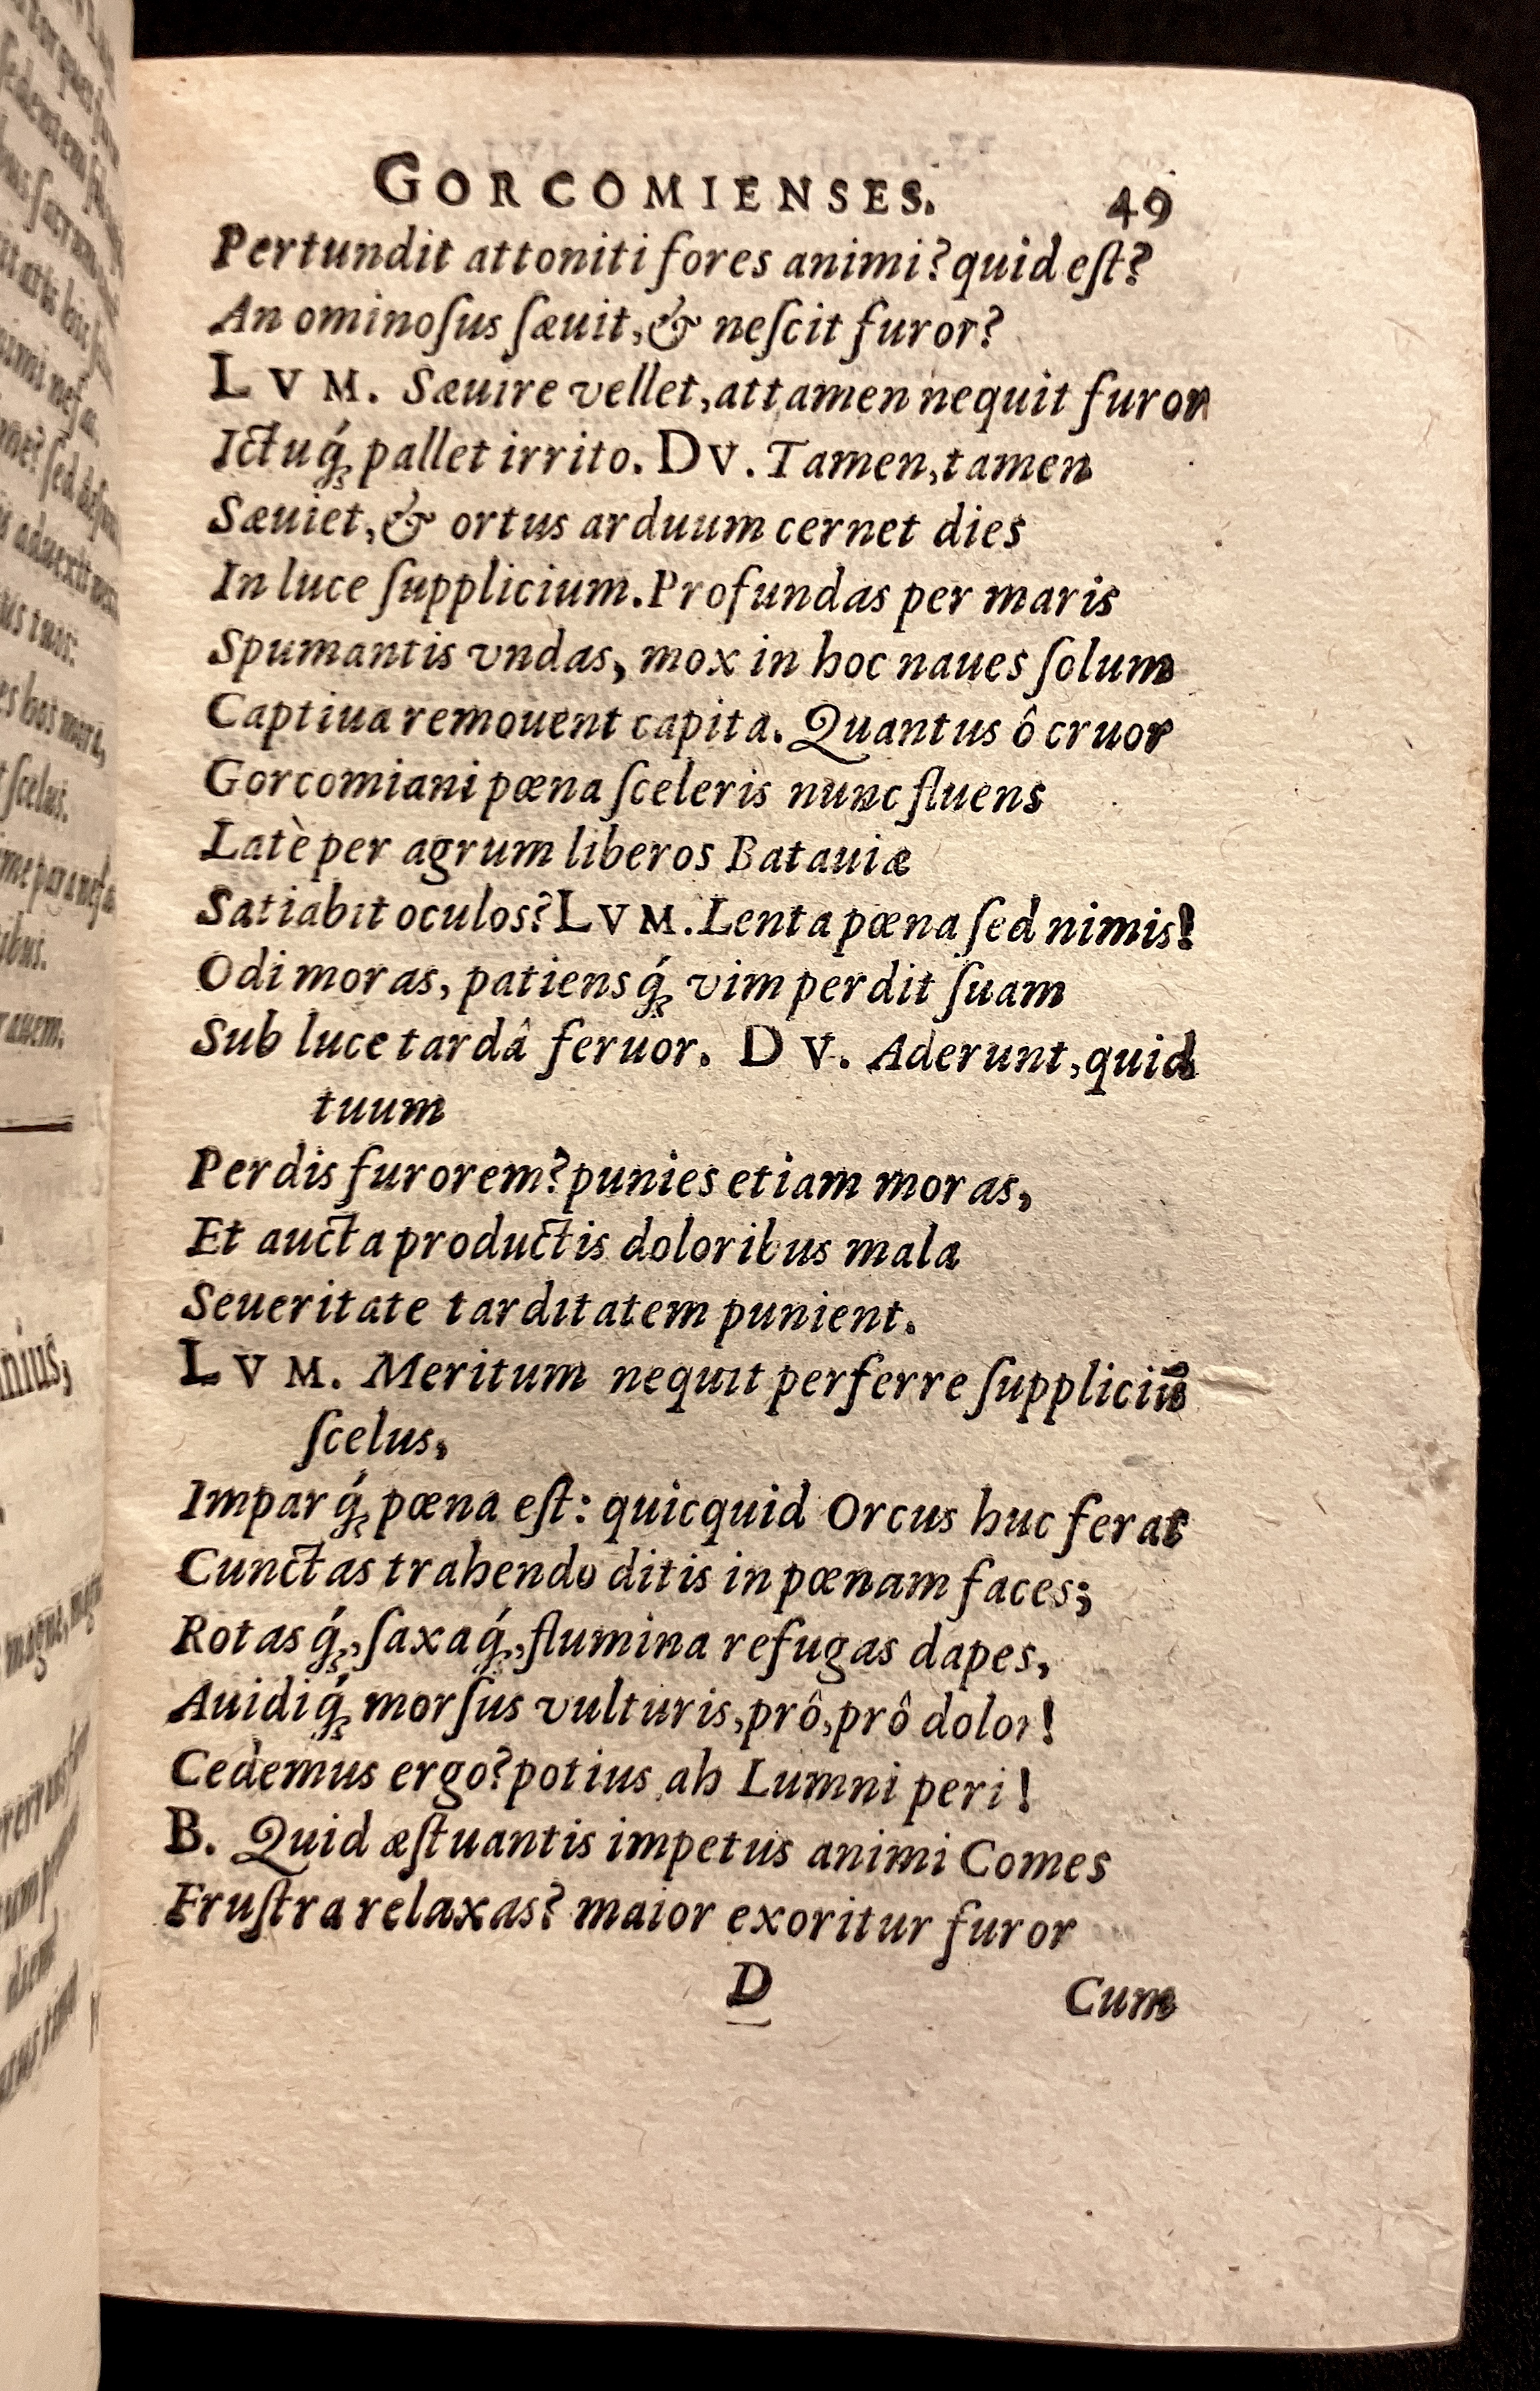 GORCOMIENSES. 49
Pertundit attoniti fores animi? quid eſt?
An ominoſus ſæuit, & neſcit furor?
LVM. Sæuire vellet, attamen nequit furor
Ictuq́ꝫ pallet irrito. DV. Tamen, tamen
Sæuiet, & ortus arduum cernet dies
In luce ſupplicium. Profundas per maris
Spumantis vndas, mox in hoc naues ſolum
Captiua remouent capita. Quantus ô cruor
Gorcomiani pœna ſceleris nunc fluens
Latè per agrum liberos Batauiæ
Satiabit oculos? LVM. Lenta pœna ſed nimis!
Odi moras, patiensq́ꝫ vim perdit ſuam
Sub luce tardâ feruor. DV. Aderunt, quid
tuum
Perdis furorem? punies etiam moras,
Et aucta productis doloribus mala
Seueritate tarditatem punient.
LVM. Meritum nequit perferre ſuppliciũ
ſcelus,
Imparq́ꝫ pœna eſt: quicquid Orcus huc ferat
Cunctas trahendo ditis in pœnam faces;
Rotasq́ꝫ, ſaxaq́ꝫ, flumina refugas dapes,
Auidiq́ꝫ morſus vulturis, prô, prô dolor!
Cedemus ergo? potius ah Lumni peri!
B. Quid æſtuantis impetus animi Comes
Fruſtra relaxas? maior exoritur furor
D Cum